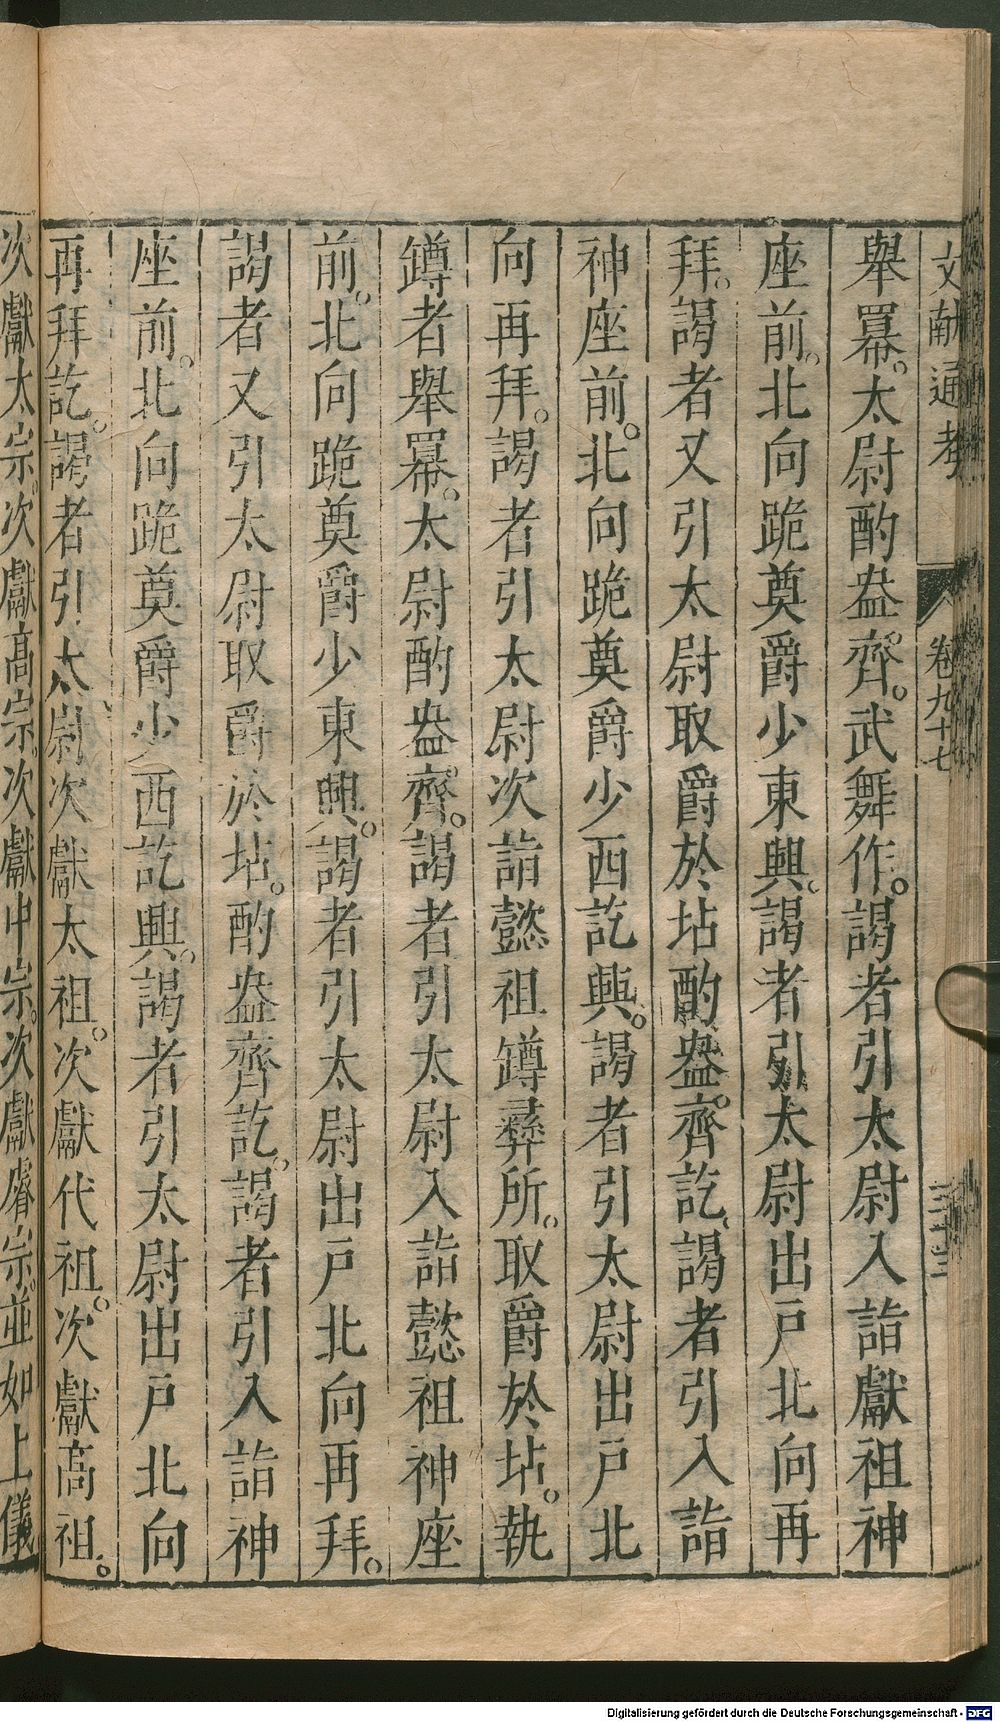 文獻通考 卷九十七
舉冪。太尉酌盎齊。武舞作。謁者引太尉入詣獻祖神
座前。北向跪奠爵少東興。謁者引太尉出戸北向再
拜。謁者又引太尉取爵於坫酌盎齊訖。謁者引入詣
神座前。北向跪奠爵少西訖興。謁者引太尉出戸北
向再拜。謁者引太尉次詣懿祖罇彞所。取爵於坫。執
罇者舉冪。太尉酌盎齊。謁者引太尉入詣懿祖神座
前。北向跪奠爵少東興。謁者引太尉出戸北向再拜。
謁者又引太尉取爵於坫。酌盎齊訖。謁者引入詣神
座前。北向跪奠爵少西訖興。謁者引太尉出戸北向
再拜訖。謁者引太尉次獻太祖。次獻代祖。次獻高祖。
次獻太宗。次獻高宗。次獻中宗。次獻睿宗。並如上儀
Digitalisierung gefördert durch die Deutsche Forschungsgemeinschaft - DFG